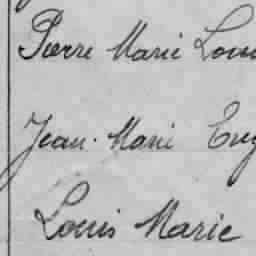 Pierre Marie Loui
Jean. Marie Eug
Louis Marie